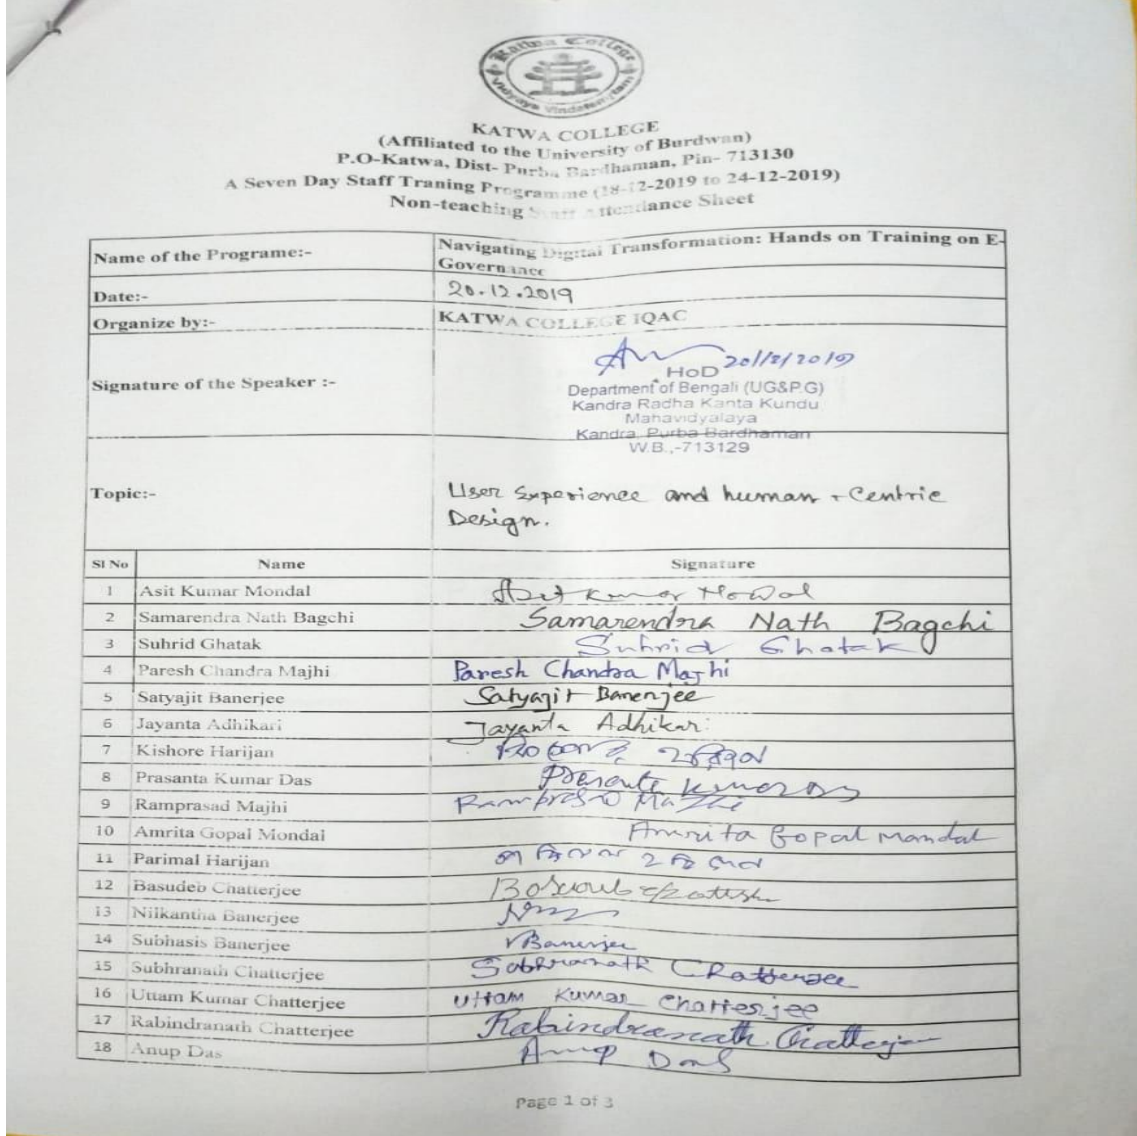 Katwa College
KATWA COLLEGE
(Affiliated to the University of Burdwan)
P.O-Katwa, Dist- Purba Bardhaman, Pin- 713130
A Seven Day Staff Traning Programme (18-12-2019 to 24-12-2019)
Non-teaching Staff Attendance Sheet
Name of the Programe:- Navigating Digital Transformation: Hands on Training on E-
Governance
Date:- 20.12.2019
Organize by:- KATWA COLLEGE IQAC
20/12/2019
HoD
Signature of the Speaker :- Department of Bengali (UG&P.G)
Kandra Radha Kanta Kundu
Mahavidyalaya
Kandra, Purba Bardhaman
W.B.,-713129
Topic:- User Experience and human - Centric
Design.
Sl No Name Signature
1 Asit Kumar Mondal Asit Kumar Mondal
2 Samarendra Nath Bagchi Samarendra Nath Bagchi
3 Suhrid Ghatak Suhrid Ghatak
4 Paresh Chandra Majhi Paresh Chandra Majhi
5 Satyajit Banerjee Satyajit Banerjee
6 Jayanta Adhikari Jayanta Adhikari
7 Kishore Harijan
8 Prasanta Kumar Das Prasanta Kumar Das
9 Ramprasad Majhi Ramprasad Majhi
10 Amrita Gopal Mondal Amrita Gopal Mandal
11 Parimal Harijan
12 Basudeb Chatterjee
13 Nilkantha Banerjee
14 Subhasis Banerjee Banerjee
15 Subhranath Chatterjee Subhranath Chatterjee
16 Uttam Kumar Chatterjee Uttam Kumar Chatterjee
17 Rabindranath Chatterjee Rabindranath Chatterjee
18 Anup Das Anup Das
Page 1 of 3